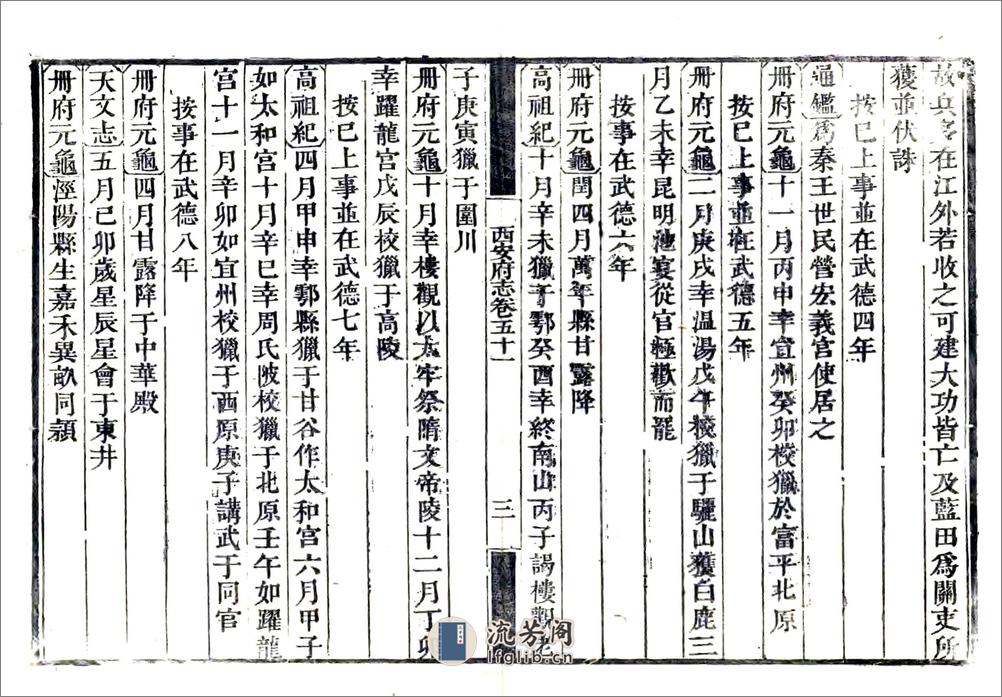 故兵多在江外若收之可建大功皆亡及藍田爲關吏所
獲並伏誅
按已上事並在武德四年
通鑑爲秦王世民營宏義宮使居之
册府元龜十一月丙申幸宜州癸卯校獵於富平北原
按已上事並在武德五年
册府元龜二月庚戌幸温湯戊午校獵于驪山獲白鹿三
月乙未幸昆明池宴從官極歡而罷
按事在武德六年
册府元龜閏四月萬年縣甘露降
高祖紀十月辛未獵于鄠癸酉幸終南山丙子謁樓觀老
西安府志卷五十一
三
子庚寅獵于圍川
册府元龜十月幸樓觀以太牢祭隋文帝陵十二月丁卯
幸躍龍宫戊辰校獵于高陵
按已上事並在武德七年
高祖紀四月甲申幸鄠縣獵于甘谷作太和宫六月甲子
如太和宫十月辛巳幸周氏陂校獵于北原壬午如躍龍
宫十一月辛卯如宜州校獵于西原庚子講武于同官
按事在武德八年
册府元龜四月甘露降于中華殿
天文志五月己卯歲星辰星會于東井
册府元龜涇陽縣生嘉禾異畝同潁
流芳阁
lfglib.cn